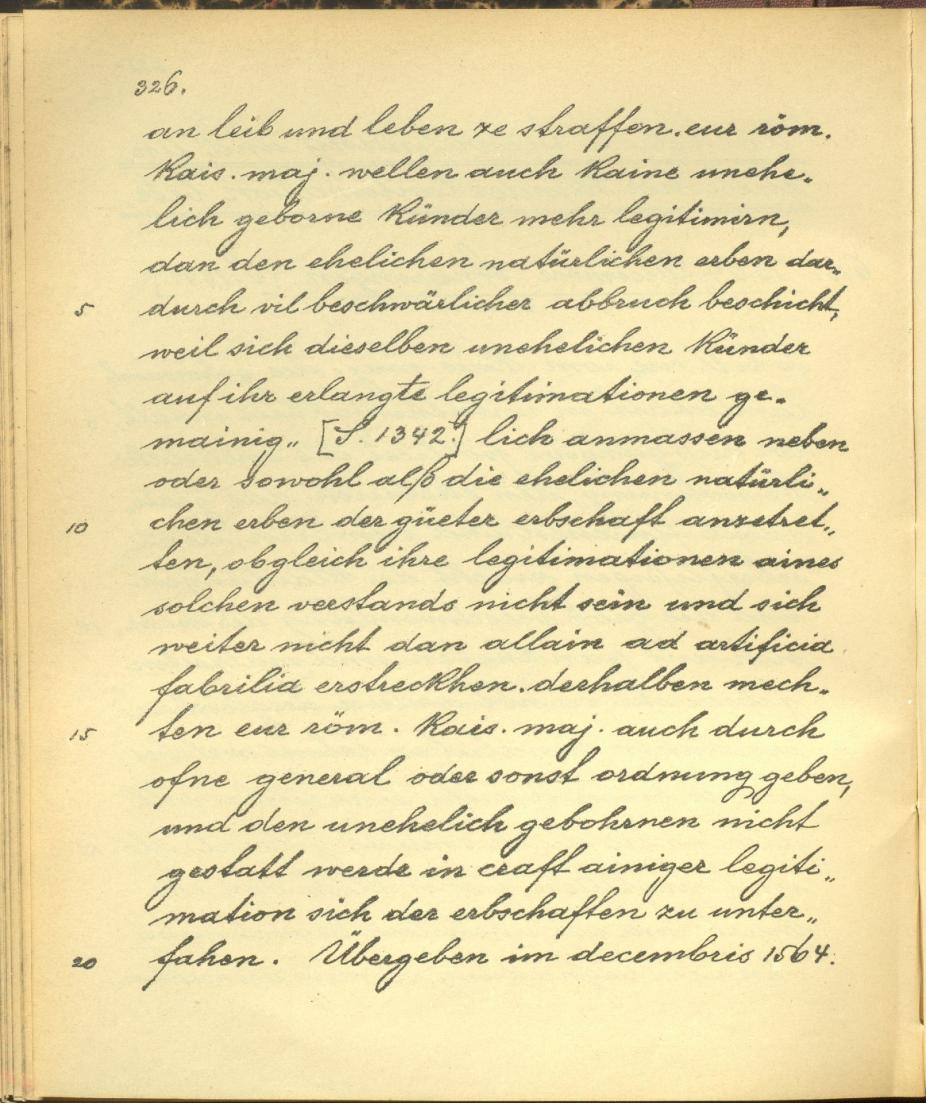 326.
an leib und leben ze straffen. eur röm.
Kais. maj. wellen auch Kaine unehe-
lich geborne Künder mehr legitimirn,
dan den ehelichen natürlichen erben dar„
5 durch vil beschwärlicher abbruch beschicht,
weil sich dieselben unehelichen Künder
auf ihr erlangte legitimationen ge-
mainig„ [S. 1342.] lich anmassen neben
oder sowohl alß die ehelichen natürli„
10 chen erben der güeter erbschaft anzetret„
ten, obgleich ihre legitimationen aines
solchen verstands nicht sein und sich
weiter nicht dan allain ad artificia
fabrilia erstreckhen. derhalben mech-
15 ten eur röm. Kais. maj. auch durch
ofne general oder sonst ordnung geben,
und den unehelich gebohrnen nicht
gestatt werde in craft ainiger legiti„
mation sich der erbschaften zu unter„
20 fahen. Übergeben im decembris 1564.